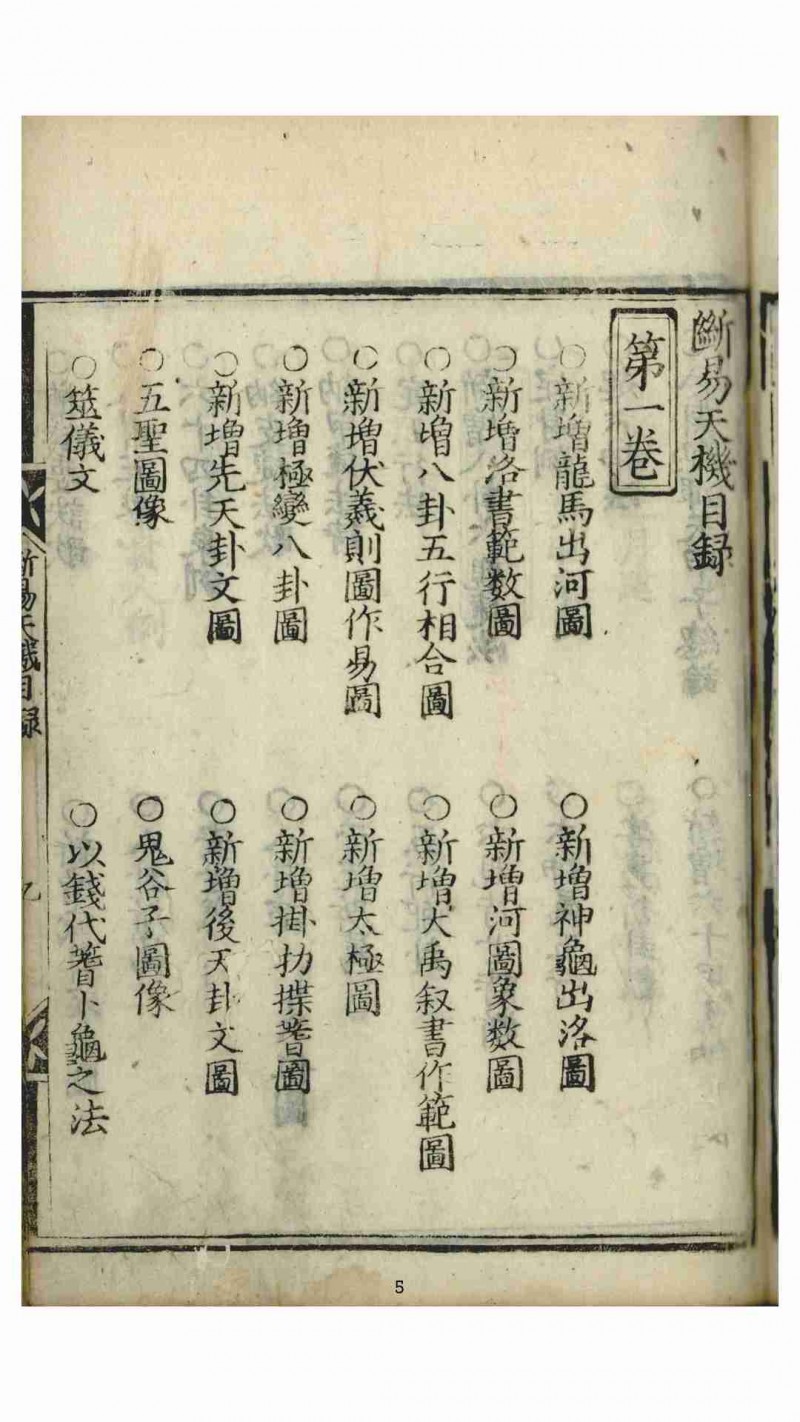 斷易天機目録
第一卷
○新增龍馬出河圖
○新增神龜出洛圖
○新增洛書範數圖
○新增河圖象數圖
○新增八卦五行相合圖
○新增大禹叙書作範圖
○新增伏羲則圖作易圖
○新增太極圖
○新增極變八卦圖
○新增掛扐揲蓍圖
○新增先天卦文圖
○新增後天卦文圖
○五聖圖像
○鬼谷子圖像
○筮儀文
○以錢代蓍卜龜之法
斷易天機目録
5